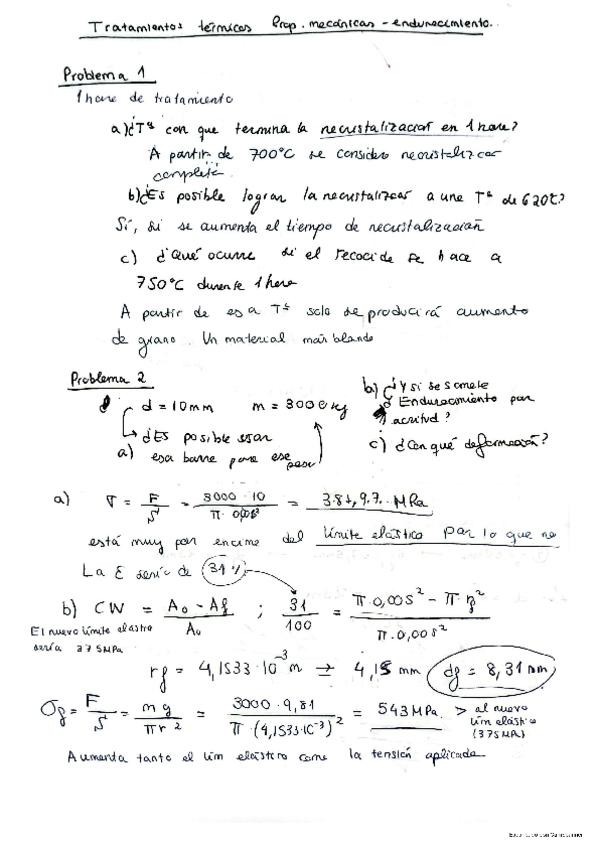 Tratamientos térmicos Prop. mecánicas - endurecimiento.
Problema 1
1 hora de tratamiento
a) ¿Tª con que termina la recristalización en 1 hora?
A partir de 700ºC se considera recristalizar
completa
b) ¿Es posible lograr la recristalizar a una Tª de 620ºC?
Sí, si se aumenta el tiempo de recristalización
c) ¿Qué ocurre si el recocido se hace a
750ºC durante 1 hora
A partir de esa Tª solo se producirá aumento
de grano. Un material más blando
Problema 2
d = 10mm m = 3000 kg
¿Es posible usar
a) esa barra para ese peso
b) ¿Y si se somete
a Endurecimiento por
acritud?
c) ¿Con qué deformación?
a) σ = F/S = 3000·10 / π = MPa
está muy por encima del límite elástico por lo que no
La E sería de 31%
b) CW = A₀ - Af / A₀ ; 31/100 = π·0,005² - π·rf² / π·0,005²
El nuevo límite elástico
sería 375MPa
rf = 4,1533·10⁻³ m ⇒ 4,15 mm df = 8,31 mm
σf = F/S = mg/πr² = 3000·9,81 / π·(4,1533·10⁻³)² = 543MPa. > al nuevo
lím elástico
(375MPa)
Aumenta tanto el lím elástico como la tensión aplicada.